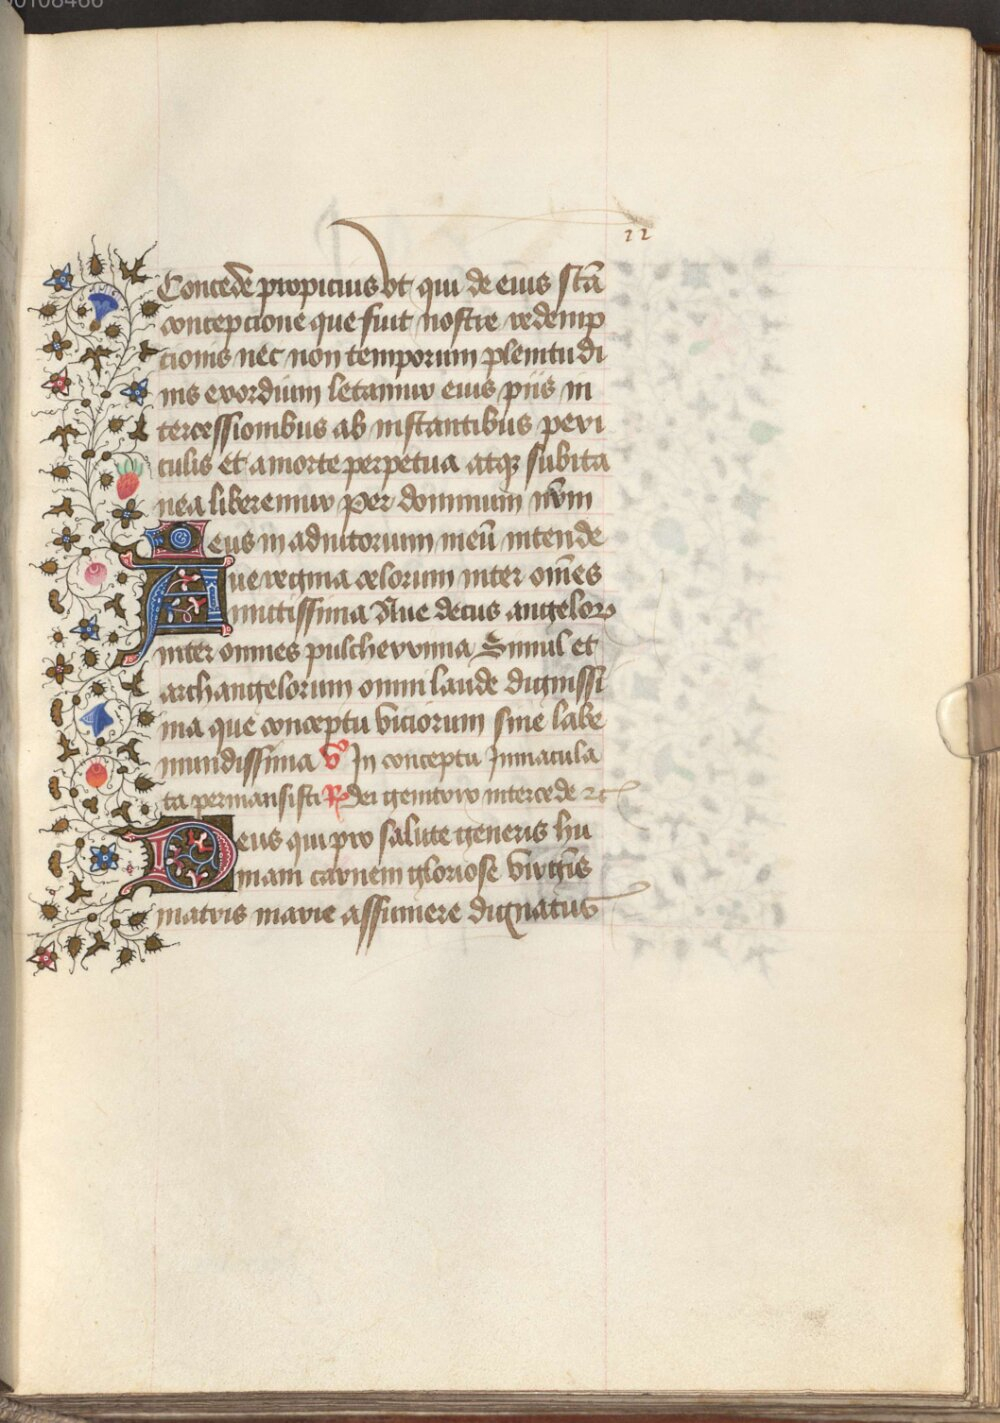 00108466
22
Concede propicius vt qui de eius sctā
concepcione que fuit nostre redemp
cionis nec non temporum plenitudi
nis exordium letamur eius piis in
tercessionibus ab instantibus peri
culis et a morte perpetua atqꝫ subita
nea liberemur per dominum nr̄m
Deus in adiutorium meū intende
Aue regina celorum inter om̄es
mitissima Aue decus angeloꝝ
inter omnes pulcherrima Simul et
archangelorum omni laude dignissi
ma que conceptu viciorum sine labe
mundissima ℣ In conceptu Inmacula
ta permansisti ℟ dei genitorx intercede ⁊c
Deus qui pro salute generis hu
mani carnem gloriose virgīs
matris marie assumere dignatus